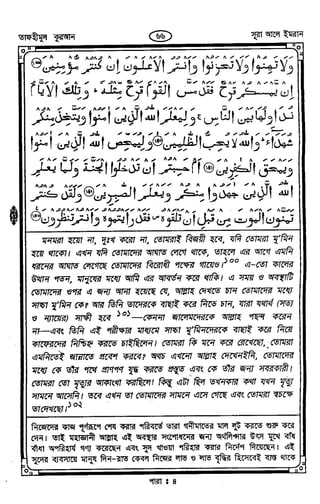 তাফহীমুল কুরআন ৬৬ সূরা আলে ইমরান
وَلَا تَهِنُوا وَلَا تَحْزَنُوا وَأَنْتُمُ الْأَعْلَوْنَ إِنْ كُنْتُمْ مُؤْمِنِينَ ﴿١٣٩﴾
إِنْ يَمْسَسْكُمْ قَرْحٌ فَقَدْ مَسَّ الْقَوْمَ قَرْحٌ مِثْلُهُ ۚ وَتِلْكَ الْأَيَّامُ
نُدَاوِلُهَا بَيْنَ النَّاسِ ۚ وَلِيَعْلَمَ اللَّهُ الَّذِينَ آمَنُوا وَيَتَّخِذَ مِنْكُمْ
شُهَدَاءَ ۗ وَاللَّهُ لَا يُحِبُّ الظَّالِمِينَ ﴿١٤٠﴾ وَلِيُمَحِّصَ اللَّهُ الَّذِينَ آمَنُوا
وَيَمْحَقَ الْكَافِرِينَ ﴿١٤١﴾ أَمْ حَسِبْتُمْ أَنْ تَدْخُلُوا الْجَنَّةَ وَلَمَّا يَعْلَمِ
اللَّهُ الَّذِينَ جَاهَدُوا مِنْكُمْ وَيَعْلَمَ الصَّابِرِينَ ﴿١٤٢﴾ وَلَقَدْ كُنْتُمْ
تَمَنَّوْنَ الْمَوْتَ مِنْ قَبْلِ أَنْ تَلْقَوْهُ ۖ فَقَدْ رَأَيْتُمُوهُ وَأَنْتُمْ تَنْظُرُونَ ﴿١٤٣﴾
মনমরা হয়ো না, দুঃখ করো না, তোমরাই বিজয়ী হবে, যদি তোমরা মু'মিন
হয়ে থাকো। এখন যদি তোমাদের আঘাত লেগে থাকে, তাহলে এর আগে এমনি
ধরনের আঘাত লেগেছে তোমাদের বিরোধী পক্ষের গায়েও।১০০ এ–তো কালের
উত্থান পতন, মানুষের মধ্যে আমি এর আবর্তন করে থাকি। এ সময় ও অবস্থাটি
তোমাদের ওপর এ জন্য আনা হয়েছে যে, আল্লাহ দেখতে চান তোমাদের মধ্যে
সাচ্চা মু'মিন কে? আর তিনি তাদেরকে বাছাই করে নিতে চান, যারা যথার্থ (সত্য
ও ন্যায়ের) সাক্ষী হবে ১০১—কেননা জালেমদেরকে আল্লাহ পছন্দ করেন
না—এবং তিনি এই পরীক্ষার মাধ্যমে সাচ্চা মু'মিনদেরকে বাছাই করে নিয়ে
কাফেরদের নিশ্চিহ্ন করতে চাইছিলেন। তোমরা কি মনে করে রেখেছো, তোমরা
এমনিতেই জান্নাতে প্রবেশ করবে? অথচ এখনো আল্লাহ দেখেনইনি, তোমাদের
মধ্যে কে তাঁর পথে প্রাণপণ যুদ্ধ করতে প্রস্তুত এবং কে তাঁর জন্য সবরকারী।
তোমরা তো মৃত্যুর আকাংখা করছিলে! কিন্তু এটা ছিল তখনকার কথা যখন মৃত্যু
সামনে আসেনি। তবে এখন তা তোমাদের সামনে এসে গেছে এবং তোমরা স্বচক্ষে
তা দেখছো।১০২
নিজেদের কাজ পূর্ণরূপে শেষ করার পরিবর্তে তারা গনীমাতের মাল লুট করতে শুরু করে
দেন। তাই মহাজ্ঞানী আল্লাহ এই অবস্থার সংশোধনের জন্য অর্থলিপ্সার উৎস মুখে বাঁধ
বাঁধা অপরিহার্য গণ্য করেছেন এবং সুদ খাওয়া পরিহার করার নির্দেশ দিয়েছেন। এই
সুদের ব্যবসায়ে মানুষ দিন–রাত কেবল নিজের লাভ ও লাভ বৃদ্ধির হিসেবেই ব্যস্ত থাকে
পারা : ৪